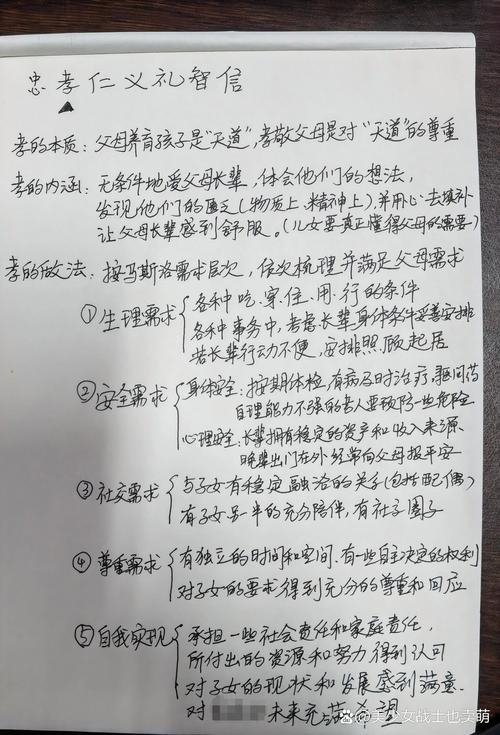 忠孝仁义礼智信
孝的本质：父母养育孩子是“天道”，孝敬父母是对“天道”的尊重
孝的内涵：无条件地爱父母长辈，体会他们的想法，
发现他们的匮乏（物质上、精神上），并用心去填补
让父母长辈感到舒服。（儿女要真正懂得父母的需要）
孝的做法：按马斯洛需求层次，依次梳理并满足父母需求
①生理需求 各种吃、穿、住、用、行的条件
各种事务中，考虑长辈身体条件妥善安排
若长辈行动不便，安排照顾起居
②安全需求 身体安全：按期体检，有病及时治疗，问药
自理能力不强的老人要预防一些危险
心理安全：长辈拥有稳定的资产和收入来源
晚辈出门在外经常向父母报平安
③社交需求 与子女有稳定融洽的关系（包括配偶）
有子女另一半的充分陪伴，有社子圈子
④尊重需求 有独立的时间和空间，有一些自主决定的权利
对子女的要求得到充分的尊重和回应
⑤自我实现 承担一些社会责任和家庭责任，
所付出的资源和努力得到认可
对子女的现状和发展感到满意
对 未来充满希望
美少女战士也卖萌